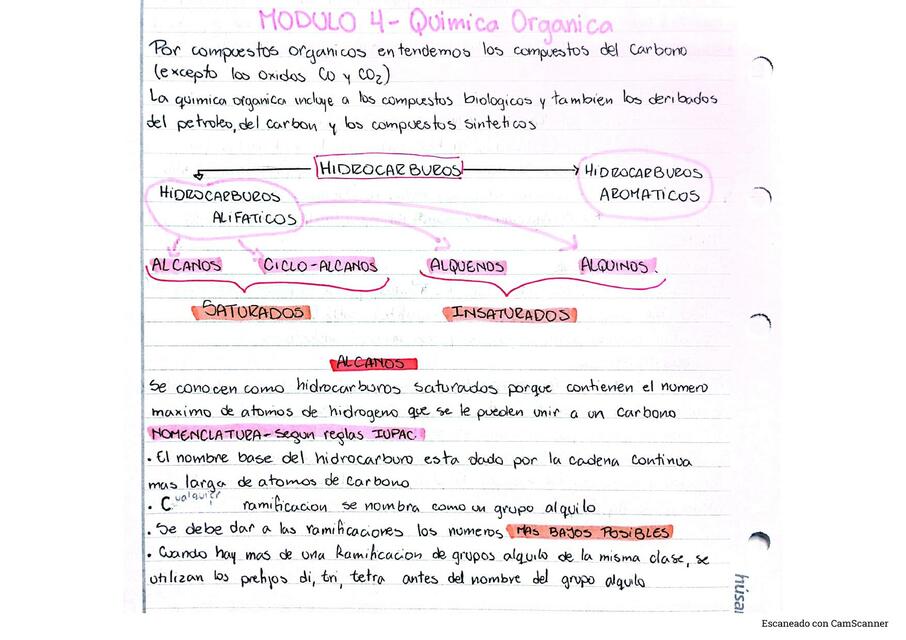 MODULO 4- Quimica Organica
Por compuestos organicos entendemos los compuestos del carbono
(excepto los oxidos CO y CO₂)
La quimica organica incluye a los compuestos biologicos y tambien los deribados
del petroleo, del carbon y los compuestos sinteticos
HIDROCARBUROS
HIDROCARBUROS
ALIFATICOS
HIDROCARBUROS
AROMATICOS
ALCANOS CICLO-ALCANOS ALQUENOS ALQUINOS.
SATURADOS INSATURADOS
ALCANOS
Se conocen como hidrocarburos saturados porque contienen el numero
maximo de atomos de hidrogeno que se le pueden unir a un carbono
NOMENCLATURA- Segun reglas IUPAC
• El nombre base del hidrocarburo esta dado por la cadena continua
mas larga de atomos de carbono
• Cualquier ramificacion se nombra como un grupo alquilo
• Se debe dar a las ramificaciones los numeros MAS BAJOS POSIBLES
• Cuando hay mas de una Ramificacion de grupos alquilo de la misma clase, se
utilizan los prefijos di, tri, tetra antes del nombre del grupo alquilo
húsar
Escaneado con CamScanner